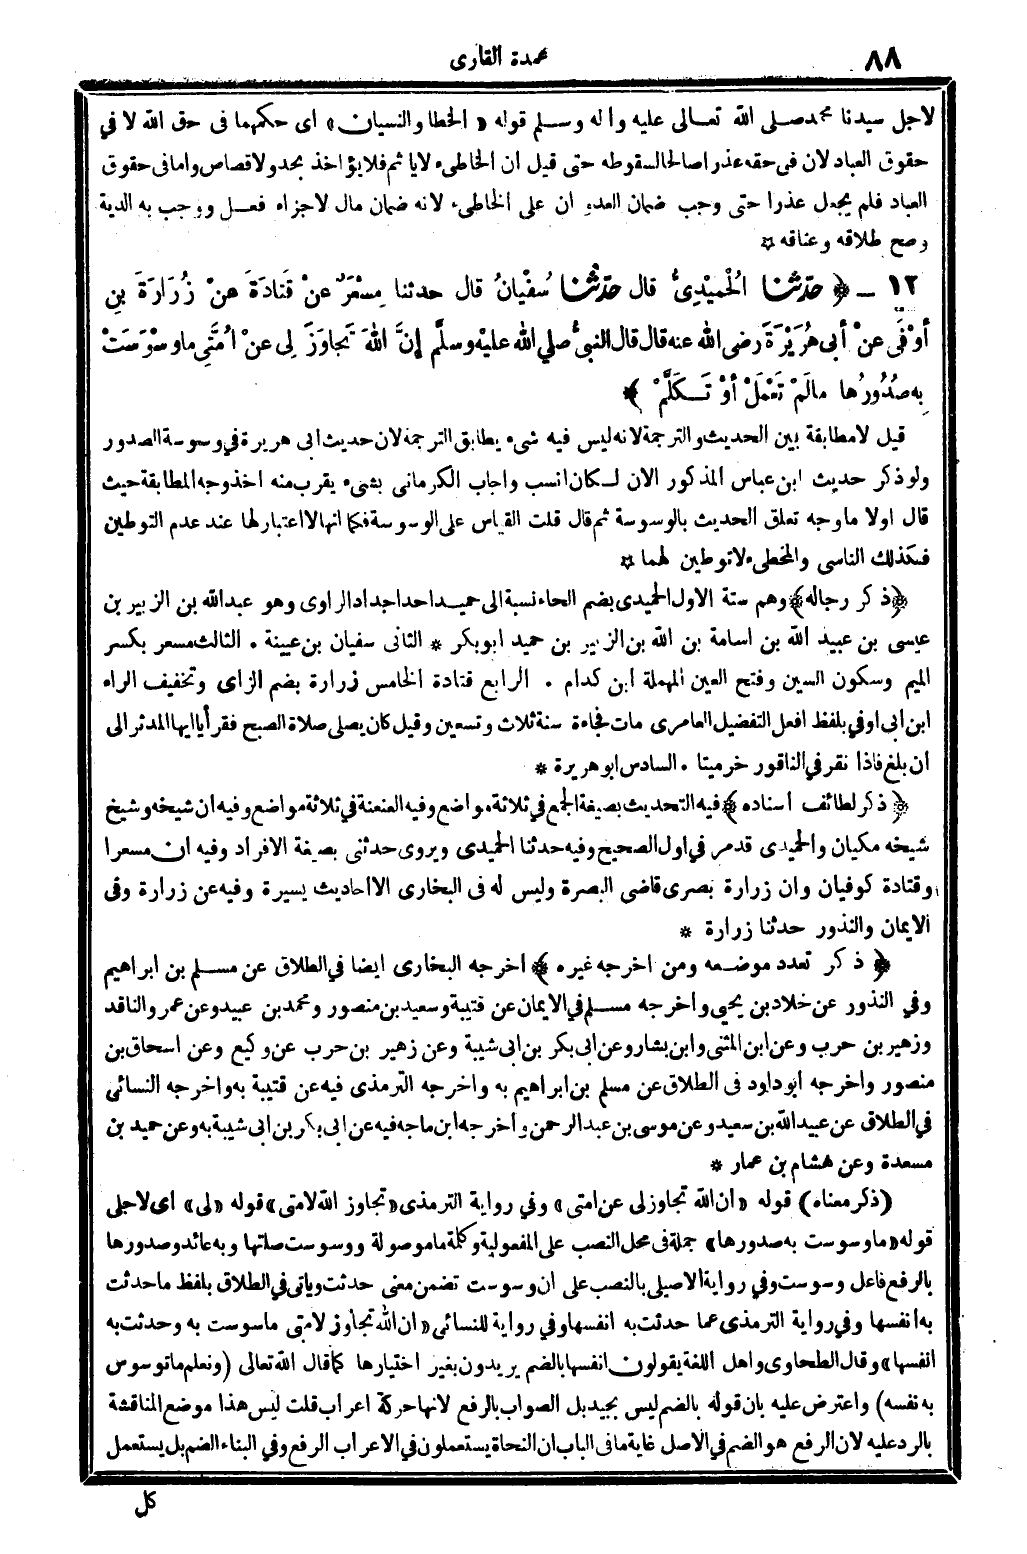 ٨٨
عمدة القارى
لاجل سيدنا محمد صلى الله تعالى عليه وآله وسلم قوله « الخطا والنسيان » اى حكمهما فى حق الله لا في
حقوق العباد لان فى حقه عذرا صالحا لسقوطه حتى قيل ان الخاطىء لا ياثم فلا يؤاخذ بحد ولا قصاص واما فى حقوق
العباد فلم يجعل عذرا حتى وجب ضمان العدوان على الخاطىء لانه ضمان مال لاجزاء فعل ووجب به الدية
وصح طلاقه وعتاقه ☆
١٢ ـ ﴿ حدّثنا الْحُمَيْدِىُّ قال حدّثنا سُفْيانُ قال حدثنا مِسْعَرٌ عنْ قَتَادَةَ عنْ زُرَارَةَ بنِ
أوْفَى عنْ أبى هُرَيْرَةَ رضى الله عنه قال قال النبىُّ صلي الله عليْه وسلَّم إنَّ اللهَ تَجاوَزَ لِى عنْ اُمَّتِي ماوسْوَسَتْ
بِهِ صُدُورُها مالَمْ تَعْمَلْ أوْ تَـكَلَّمْ ﴾
قيل لا مطابقة بين الحديث والترجمة لانه ليس فيه شىء يطابق الترجمة لان حديث ابى هريرة في وسوسة الصدور
ولو ذكر حديث ابن عباس المذكور الان لـكان انسب واجاب الكرمانى بشىء يقرب منه اخذ وجه المطابقة حيث
قال اولا ما وجه تعلق الحديث بالوسوسة ثم قال قلت القياس على الوسوسة فكما انها لا اعتبار لها عند عدم التوطين
فـكذلك الناسى والمخطىء لا توطين لهما ☆
﴿ ذكر رجاله ﴾ وهم ستة الاول الحميدى بضم الحاء نسبة الى حميد احد اجداد الراوى وهو عبد الله بن الزبير بن
عيسى بن عبيد الله بن اسامة بن الله بن الزبير بن حميد ابو بكر * الثانى سفيان بن عيينة . الثالث مسعر بكسر
الميم وسكون السين وفتح العين المهملة ابن كدام . الرابع قتادة الخامس زرارة بضم الزاى وتخفيف الراء
ابن ابى اوفي بلفظ افعل التفضيل العامرى مات فجاءة سنة ثلاث وتسعين وقيل كان يصلى صلاة الصبح فقرأ يا ايها المدثر الى
ان بلغ فاذا نقر في الناقور خر ميتا . السادس ابو هريرة *
﴿ ذكر لطائف اسناده ﴾ فيه التحديث بصيغة الجمع في ثلاثة مواضع وفيه العنعنة في ثلاثة مواضع وفيه ان شيخه وشيخ
شيخه مكيان والحميدى قد مر في اول الصحيح وفيه حدثنا الحميدى ويروى حدثنى بصيغة الافراد وفيه ان مسعرا
وقتادة كوفيان وان زرارة بصرى قاضى البصرة وليس له فى البخارى الا احاديث يسيرة وفيه عن زرارة وفى
الايمان والنذور حدثنا زرارة *
﴿ ذكر تعدد موضعه ومن اخرجه غيره ﴾ اخرجه البخارى ايضا في الطلاق عن مسلم بن ابراهيم
وفي النذور عن خلاد بن يحيي واخرجه مسلم في الايمان عن قتيبة وسعيد بن منصور ومحمد بن عبيد وعن عمرو الناقد
وزهير بن حرب وعن ابن المثنى وابن بشار وعن ابى بكر بن ابى شيبة وعن زهير بن حرب عن وكيع وعن اسحاق بن
منصور واخرجه ابو داود فى الطلاق عن مسلم بن ابراهيم به واخرجه الترمذى فيه عن قتيبة به واخرجه النسائى
في الطلاق عن عبيد الله بن سعيد وعن موسى بن عبد الرحمن واخرجه ابن ماجه فيه عن ابى بكر بن ابى شيبة به وعن حميد بن
مسعدة وعن هشام بن عمار *
(ذكر معناه) قوله « ان الله تجاوز لى عن امتى » وفي رواية الترمذى «تجاوز الله لامتى» قوله «لى» اى لاجلى
قوله «ما وسوست به صدورها» جملة فى محل النصب على المفعولية وكلمة ما موصولة ووسوست صلتها وبه عائد وصدورها
بالرفع فاعل وسوست وفي رواية الاصيلى بالنصب على ان وسوست تضمن معنى حدثت وياتى في الطلاق بلفظ ما حدثت
به انفسها وفي رواية الترمذى عما حدثت به انفسها وفي رواية للنسائى « ان الله تجاوز لامتى ما سوست به وحدثت به
انفسها» وقال الطحاوى واهل اللغة يقولون انفسها بالضم يريدون بغير اختيارها كما قال الله تعالى (ونعلم ما توسوس
به نفسه) واعترض عليه بان قوله بالضم ليس بجيد بل الصواب بالرفع لانها حركة اعراب قلت ليس هذا موضع المناقشة
بالرد عليه لان الرفع هو الضم في الاصل غاية ما فى الباب ان النحاة يستعملون في الاعراب الرفع وفي البناء الضم بل يستعمل
كل